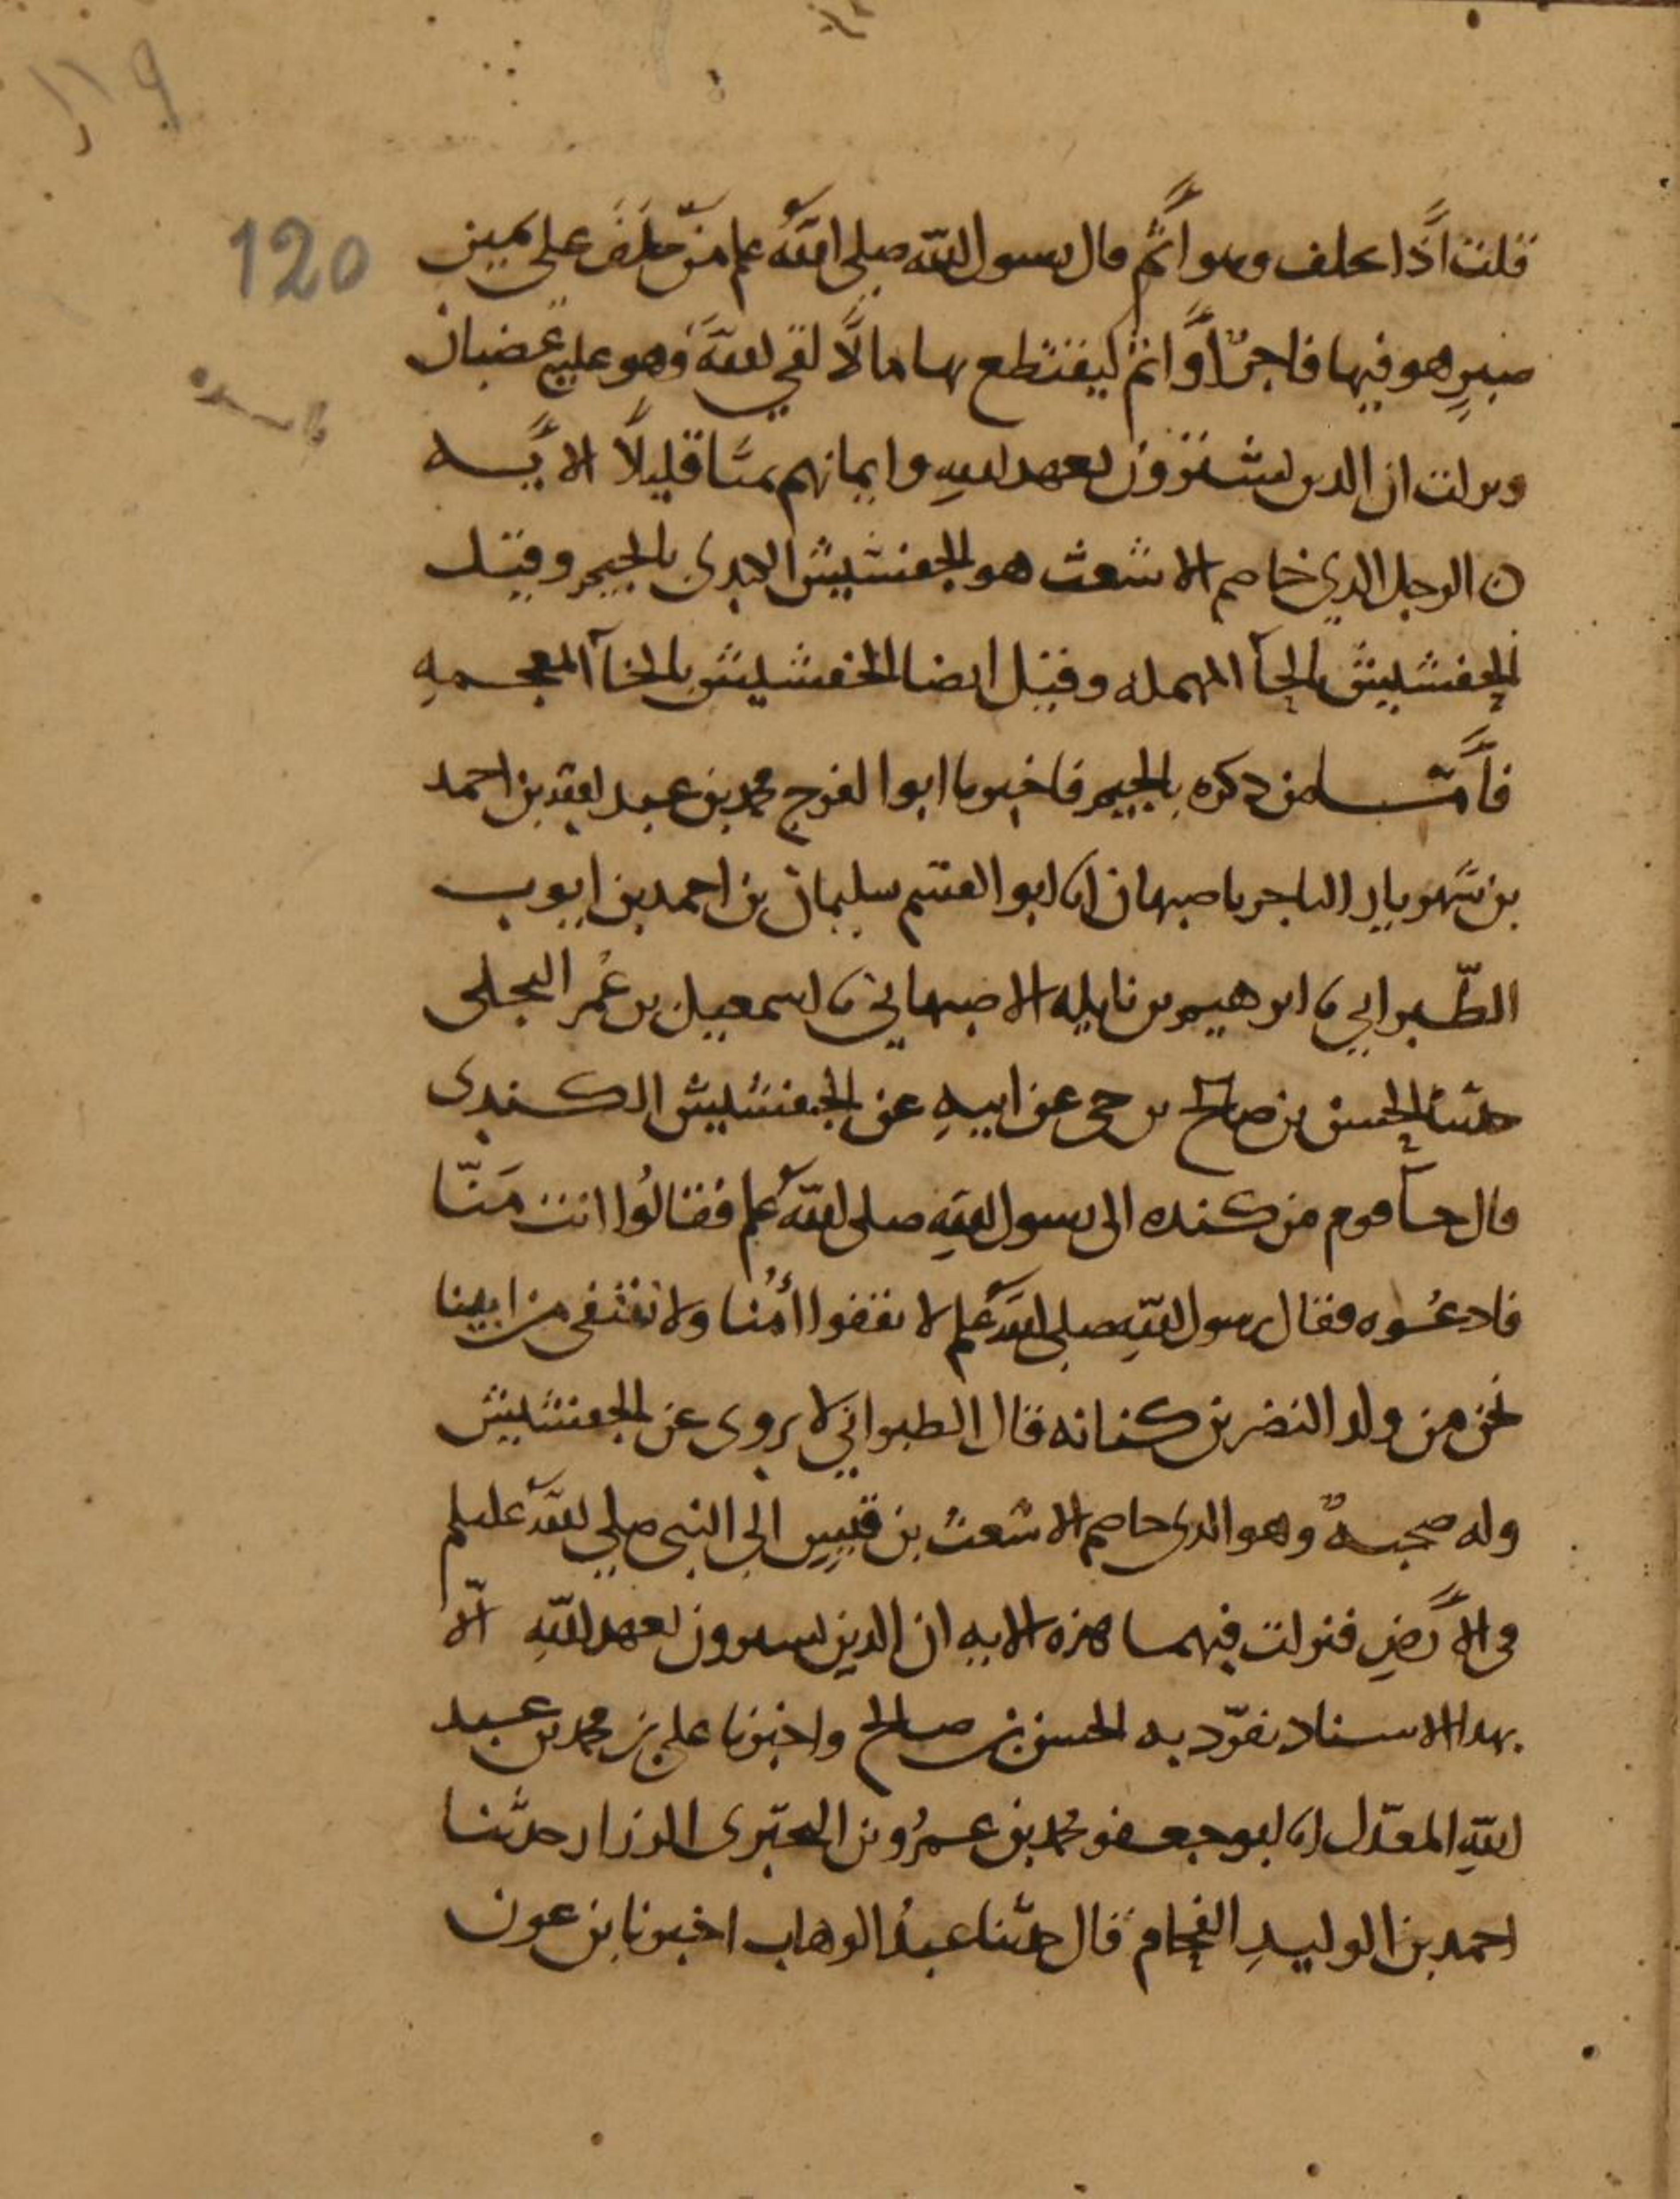 119
120
قلت اذا يحلف وهو اثم قال رسول الله صلى الله علم من حلف على يمين
صبر هو فيها فاجرا واثم ليقتطع بها مالا لقي الله وهو عليه غضبان
ونزلت ان الذين يشترون بعهد الله وايمانهم ثمنا قليلا الايه
ن الرجل الذي خاصم الاشعث هو الجفشيش الكندى بالجيم وقيل
الحفشيش بالحآ المهمله وقيل ايضا الخفشيش بالخآ المعجمه
فأما من ذكره بالجيم فاخبرنا ابوا الفرج محمد بن عبد الله بن احمد
بن شهريار التاجر باصبهان انا ابو القسم سليمان بن احمد بن ايوب
الطّبراني نا ابرهيم بن نايله الاصبهاني نا اسمعيل بن عُمر البجلى
حدثنا الحسن بن صالح بن حي عن ابيهِ عن الجفشيش الكندى
قال جآ قوم من كنده الى رسول الله صلى الله علم فقالُوا انت مَنّا
فادعُوه فقال رسول الله صلى الله علم لا نقفوا أمُنا ولا ننتفى من ابينا
نحن من ولد النضر بن كنانه قال الطبراني لا يروى عن الجفشيش
وله صحبه وهو الذى خاصم الاشعث بن قيس الى النبي صلى الله عليلم
فى الأرضِ فنزلت فيهما هذه الايه ان الذين يشترون بعهد اللهِ الّا
بهذا الاسناد تفرّد به الحسن بن صالح واخبرنا على بن محمد بن عبد
اللهِ المعدّل انا ابو جعفر محمد بن عمرُو بن البختري الرزاز حدّثنا
احمد بن الوليدِ الفحام قال حدّثنا عبدُ الوهاب اخبرنا بن عون